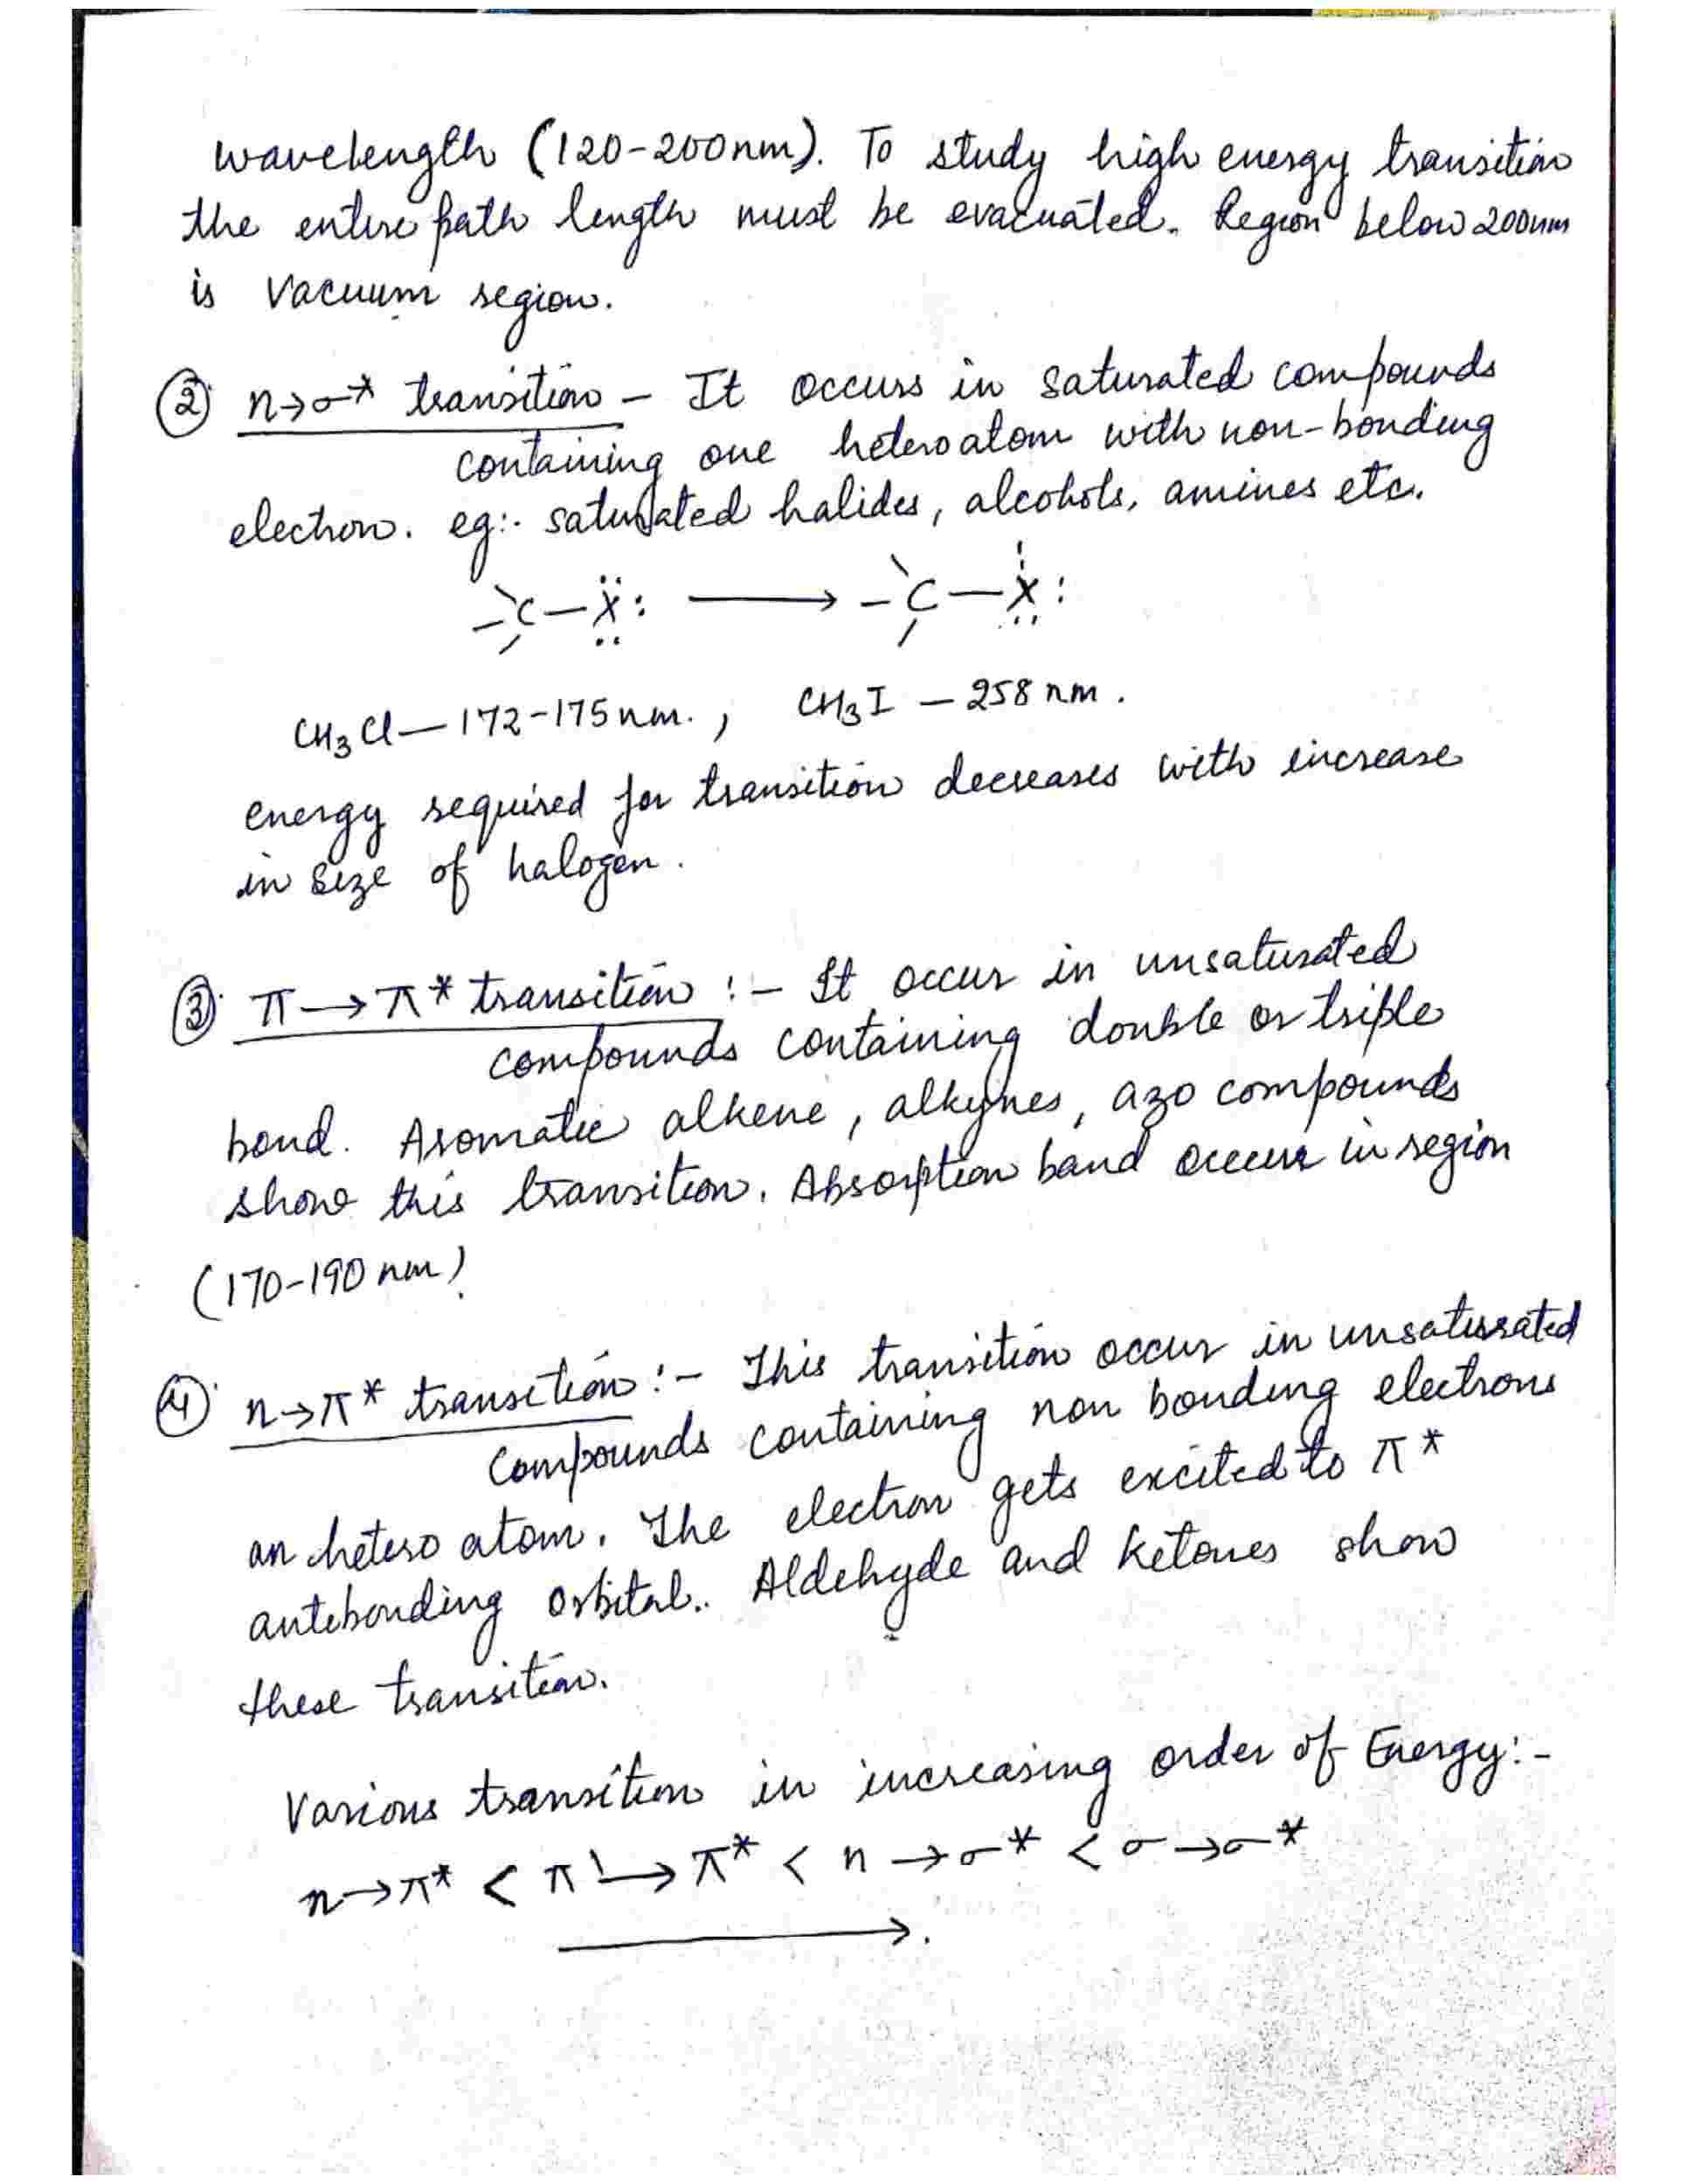 wavelength (120-200nm). To study high energy transition
the entire path length must be evacuated. Region below 200nm
is vacuum region.
② n→σ* transition - It occurs in saturated compounds
containing one heteroatom with non-bonding
electron. eg:- saturated halides, alcohols, amines etc.
-C-Ẍ: ⟶ -C-X:
CH3Cl - 172-175nm., CH3I - 258 nm.
energy required for transition decreases with increase
in size of halogen.
③ π→π* transition :- It occur in unsaturated
compounds containing double or triple
bond. Aromatic alkene, alkynes, azo compounds
show this transition. Absorption band occur in region
(170-190 nm).
④ n→π* transition :- This transition occur in unsaturated
compounds containing non bonding electrons
an hetero atom. The electron gets excited to π*
antibonding orbital. Aldehyde and ketones show
these transition.
Various transition in increasing order of Energy:-
n→π* < π→π* < n→σ* < σ→σ*
⟶.